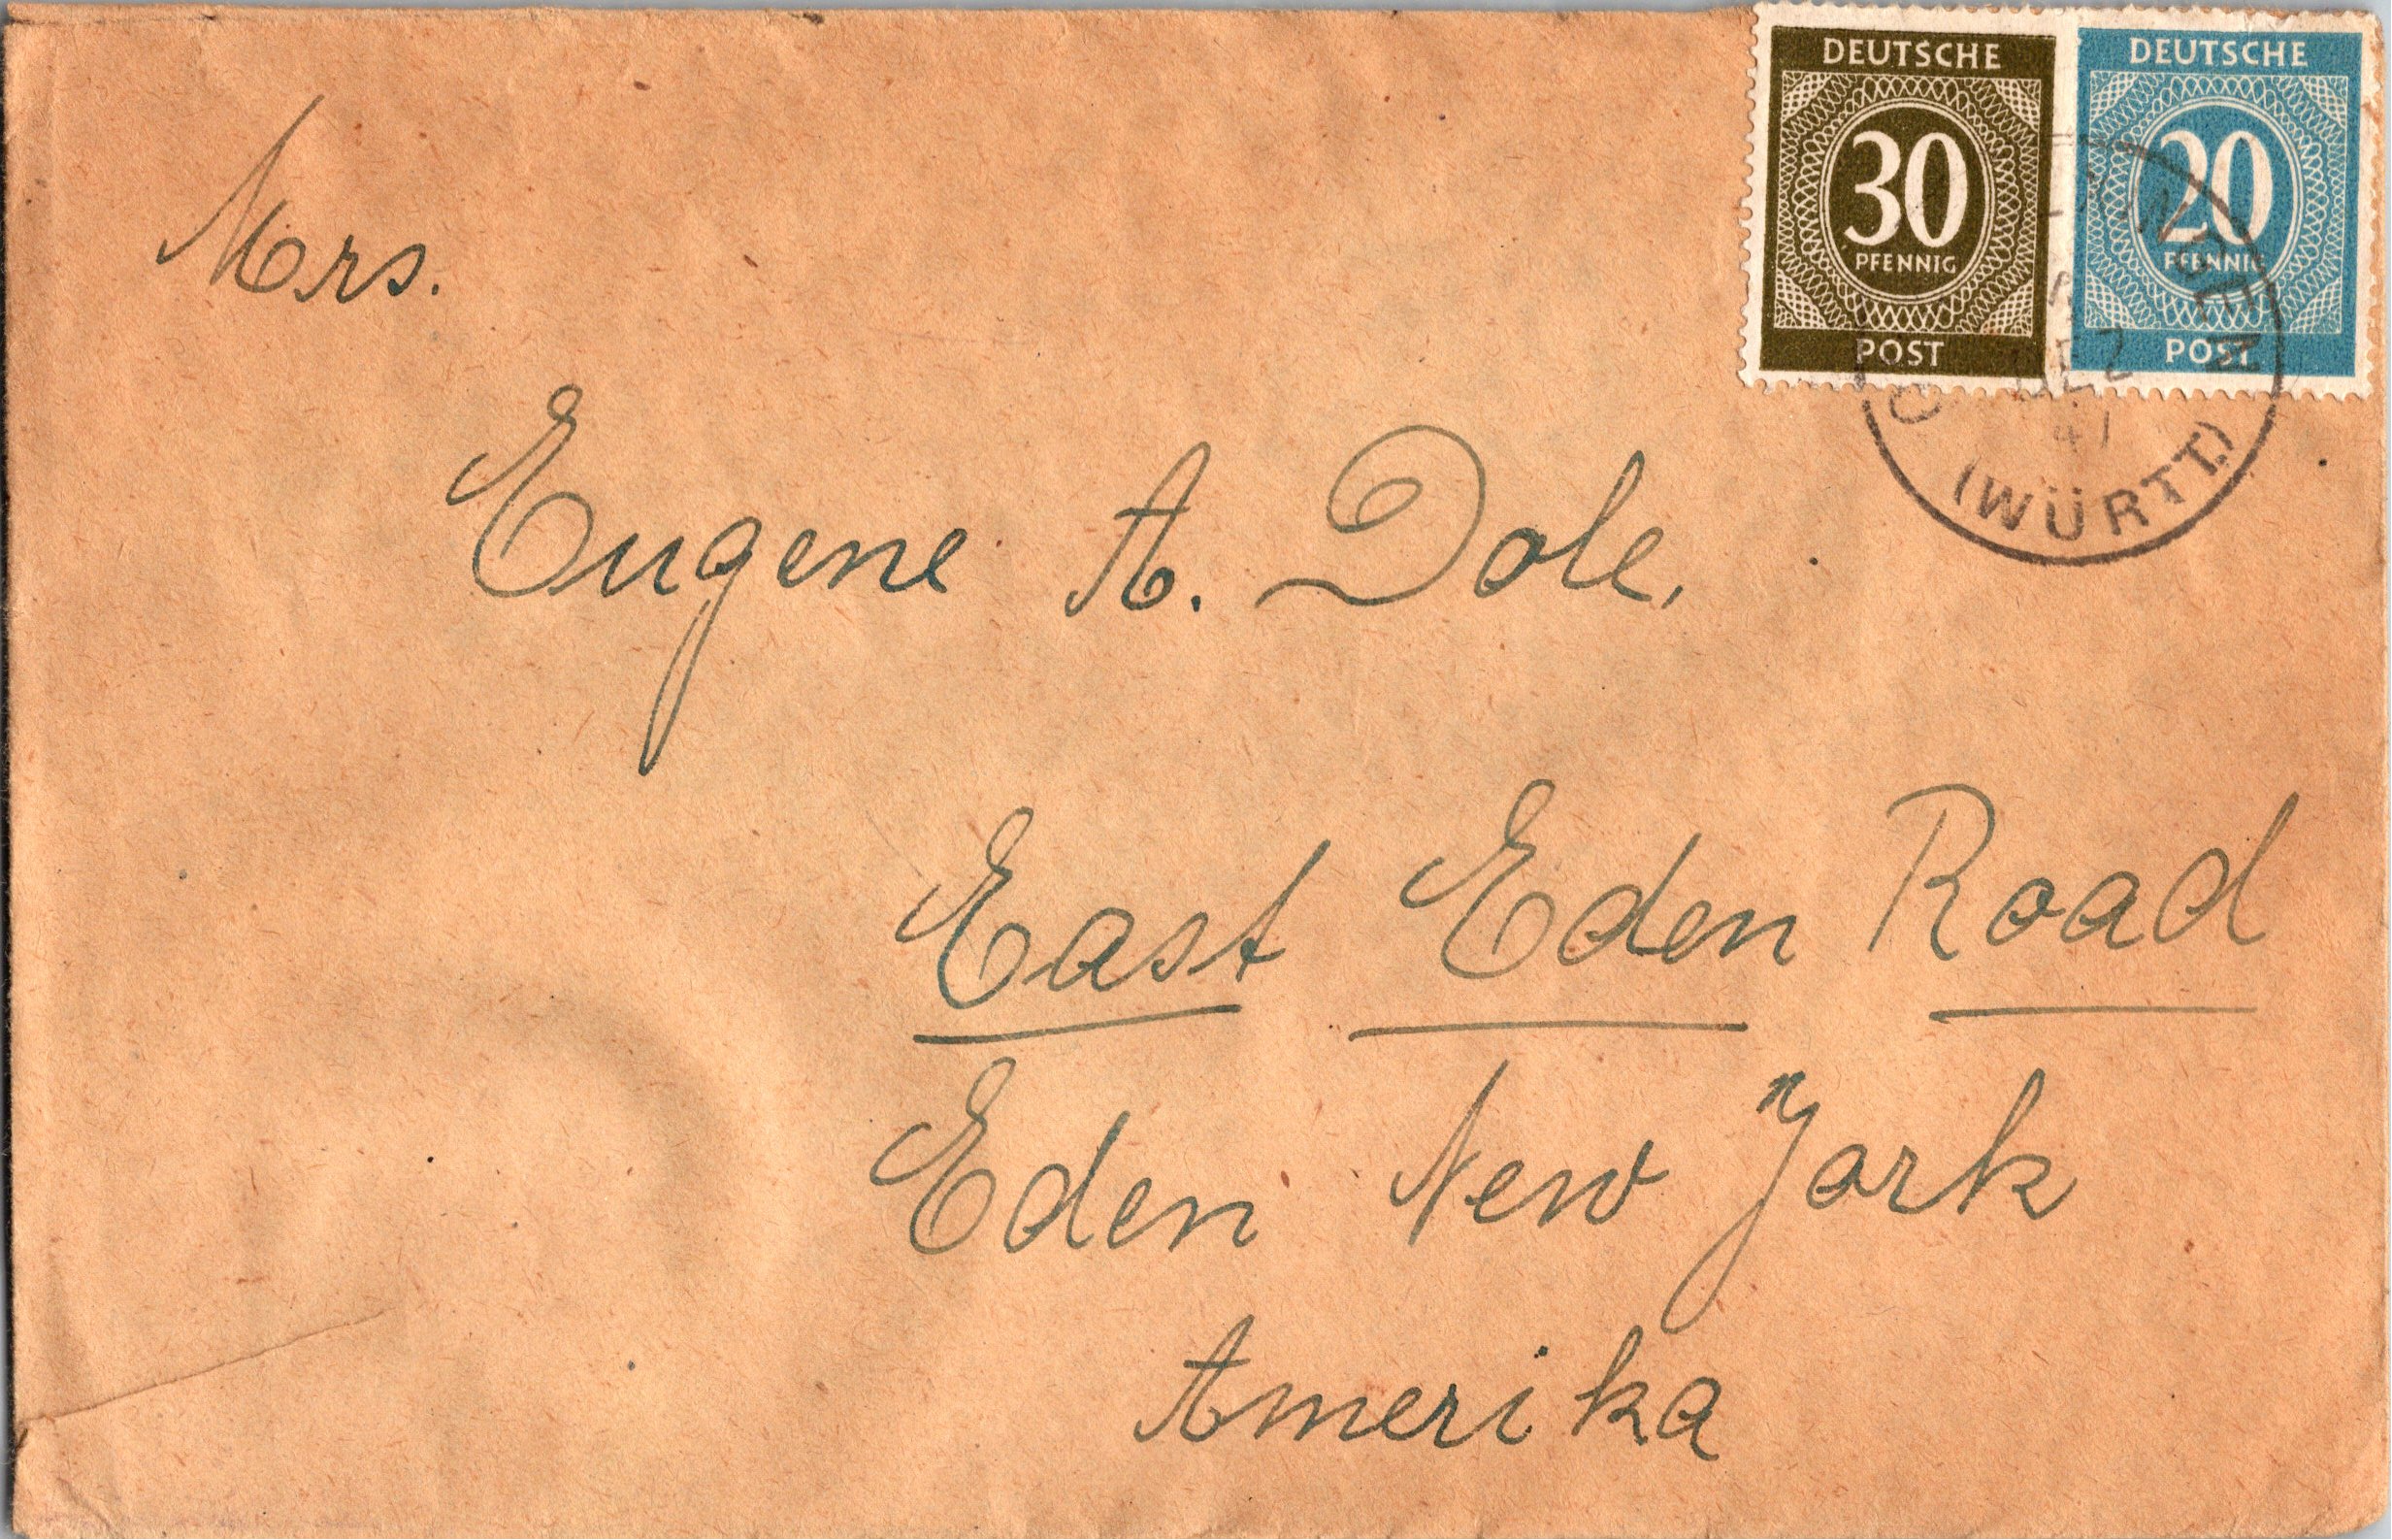 DEUTSCHE
30
PFENNIG
POST
DEUTSCHE
20
PFENNIG
POST
(WÜRTT.)
Mrs.
Eugene A. Dole,
East Eden Road
Eden New York
Amerika